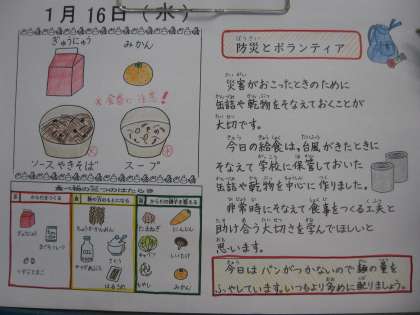 1月16日(水)
ぎゅうにゅう
みかん
※食器に注意!
ソースやきそば
スープ
食べ物の三つのはたらき
防災とボランティア
災害がおこったときのために
缶詰や乾物をそなえておくことが
大切です。
今日の給食は、台風がきたときに
そなえて学校に保管しておいた
缶詰や乾物を中心に作りました。
非常時にそなえて食事をつくる工夫と
助け合う大切さを学んでほしいと
思います。
今日はパンがつかないので麺の量を
ふやしています。いつもより多めに配りましょう。
ぎゅうにゅう
たまねぎ
にんじん
さとう
しいたけ
もやし
みかん